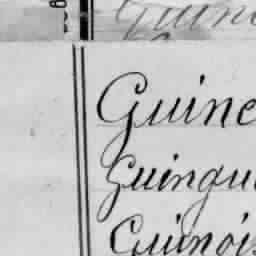 Guine
Guine
Guingu
Guinois